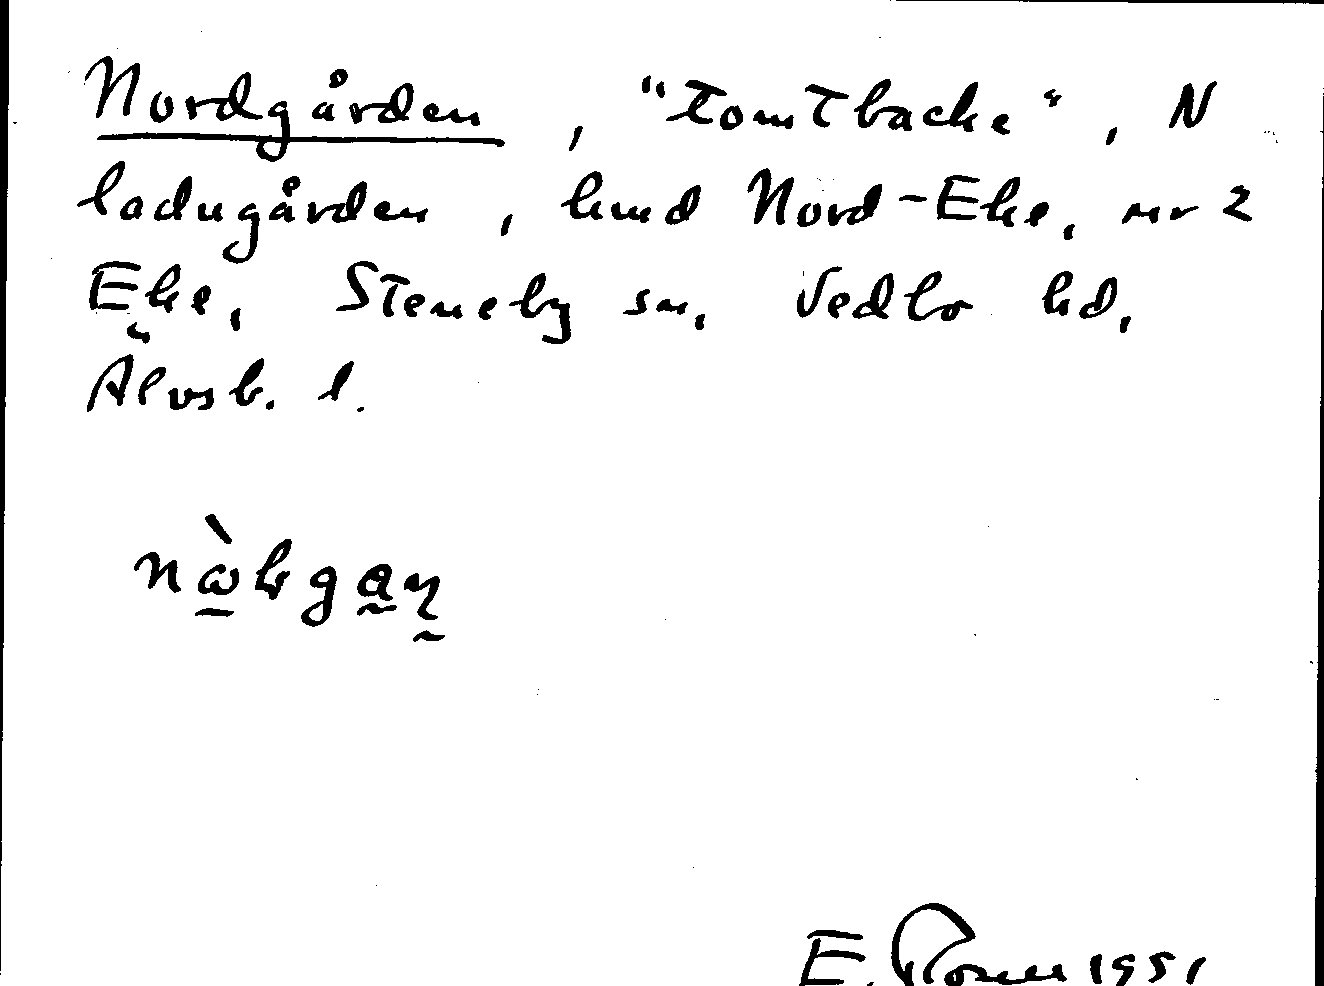 Nordgården, "tomtbacke", N
ladugården, hmd Nord-Eke, nr 2
Eke, Steneby sn, Vedbo hd,
Älvsb. l.
E. 1951